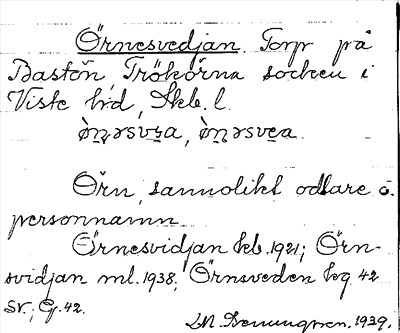 Örnesvedjan. Torp på
Bastön Trökörna socken i
Viste hd, Skb. l.
Örn, sannolikt odlare o.
personnamn
Örnesvidjan kb. 1921; Örn-
svidjan ml. 1938; Örnsveden kg 42
SV; G. 42.
1939.